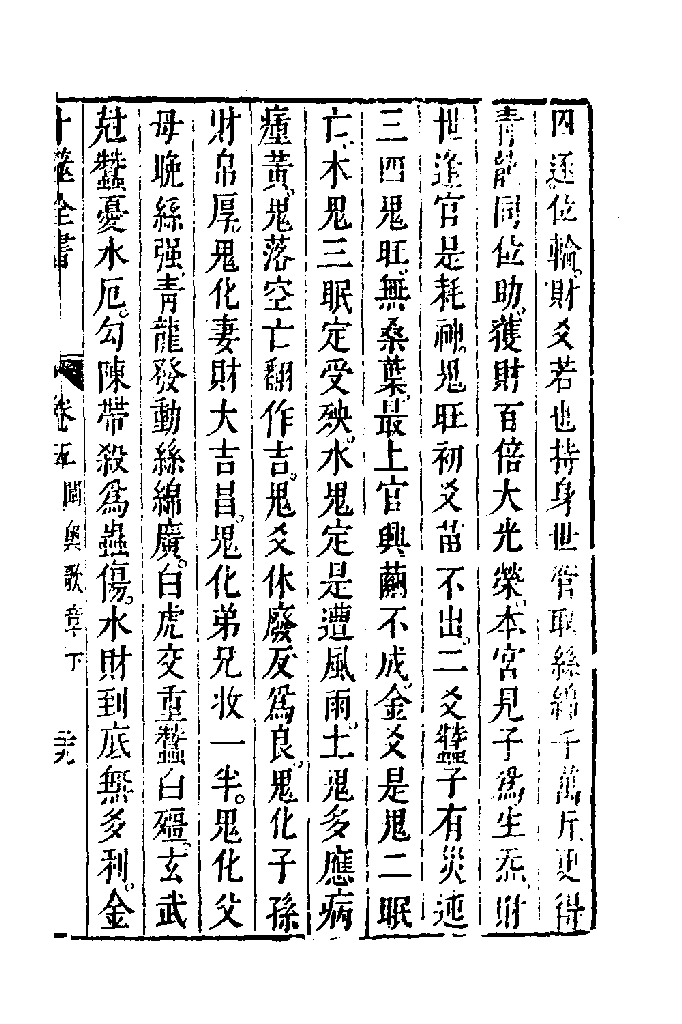 四逐位輪財爻若也持身世管取絲綿千萬斤更得
青龍同位助獲財百倍大光榮本宮見子爲生炁財
世逢官是耗神鬼旺初爻苗不出二爻蠶子有災迍
三四鬼旺無桑葉最上官興繭不成金爻是鬼二眠
亡木鬼三眠定受殃水鬼定是遭風雨土鬼多應病
瘇黃鬼落空亡翻作吉鬼爻休廢反爲良鬼化子孫
財帛厚鬼化妻財大吉昌鬼化弟兄收一半鬼化父
母晚絲强青龍發動絲綿廣白虎交重蠶白殭玄武
尅蠶憂水厄勾陳帶殺爲蟲傷水財到底無多利金
卜筮全書 卷五 闡奧歌章下 三九